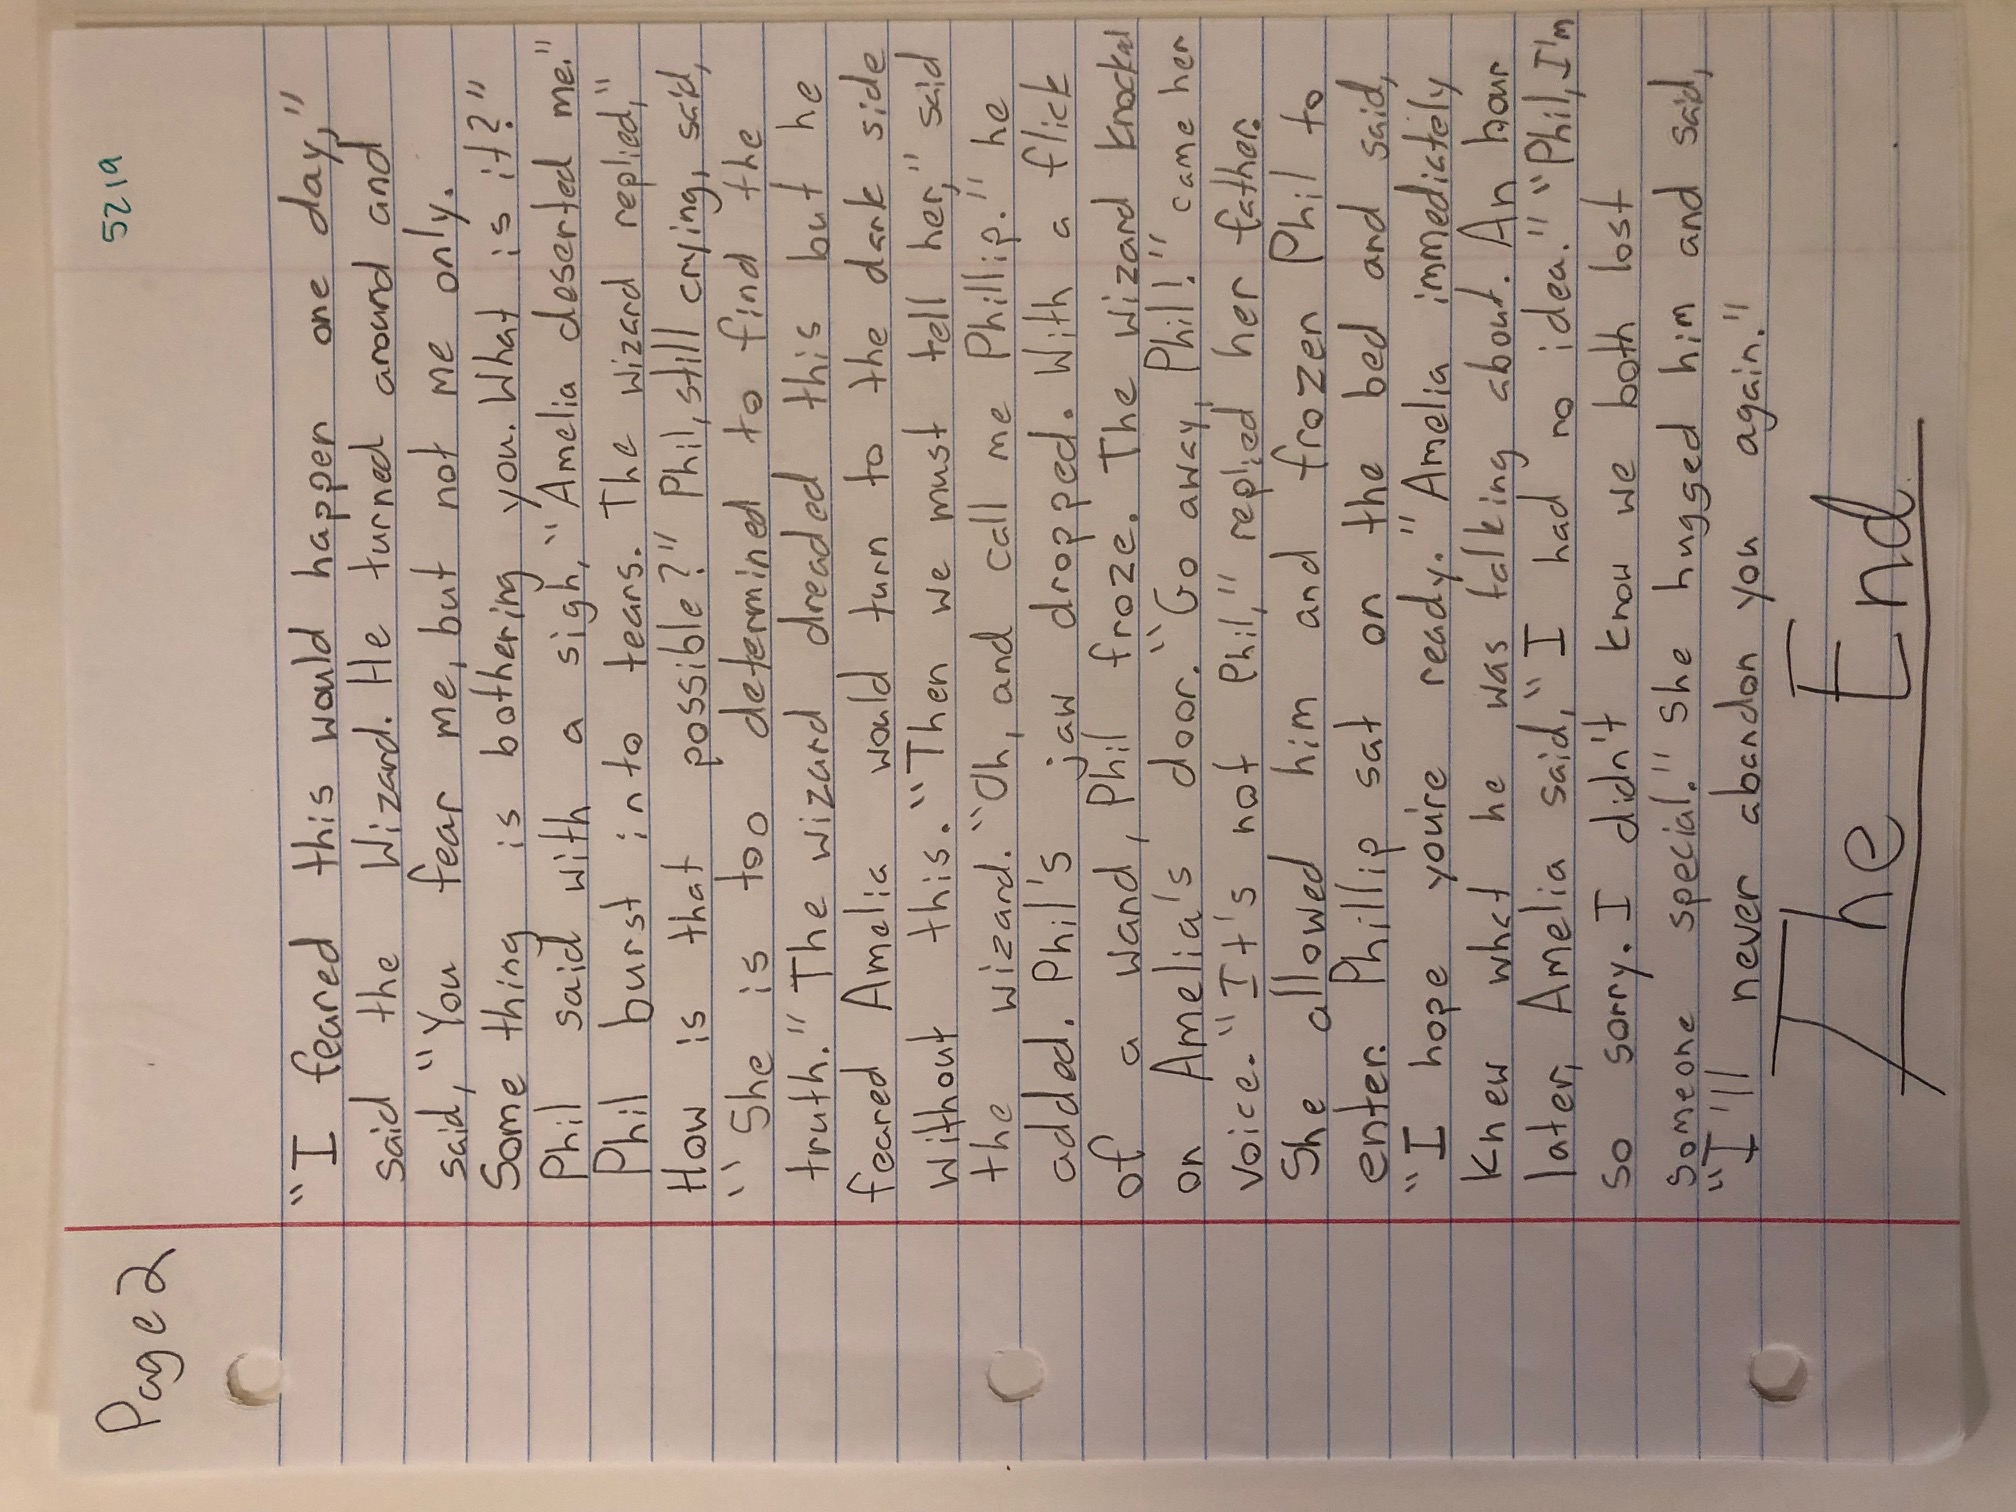 Page 2
5219
"I feared this would happen one day,"
said the Wizard. He turned around and
said, "You fear me, but not me only.
Some thing is bothering you. What is it?"
Phil said with a sigh, "Amelia deserted me."
Phil burst into tears. The wizard replied,"
How is that possible?" Phil, still crying, said,
"She is too determined to find the
truth." The wizard dreaded this but he
feared Amelia would turn to the dark side
without this. "Then we must tell her," said
the wizard. "Oh, and call me Phillip." he
added. Phil's jaw dropped. With a flick
of a wand, Phil froze. The wizard knocked
on Amelia's door. "Go away, Phil!" came her
voice. "It's not Phil," replied her father.
She allowed him and frozen Phil to
enter. Phillip sat on the bed and said,
"I hope you're ready." Amelia immediately
knew what he was talking about. An hour
later, Amelia said, "I had no idea." "Phil, I'm
so sorry. I didn't know we both lost
someone special." She hugged him and said,
"I'll never abandon you again."
The End